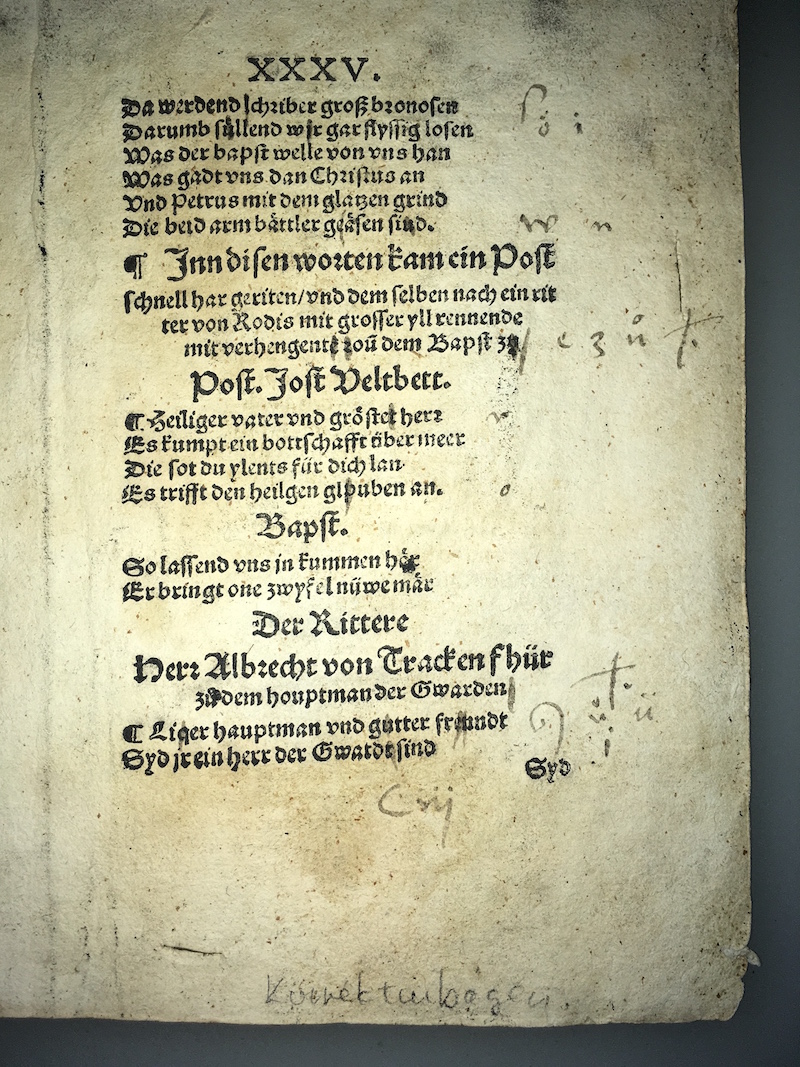 XXXV.
Da werdend schriber groß bronosen
Darumb süllend wir gar flyssig losen
Was der bapst welle von vns han
Was gadt vns dan Christus an
Vnd Petrus mit dem glatzen grind
Die beid arm bättler geäsen sind.
¶ Inn disen worten kam ein Post
schnell har geriten/vnd dem selben nach ein rit
ter von Rodis mit grosser yll rennende
mit verhengente zoũ dem Bapst zů
Post. Jost Veltbett.
¶ Heiliger vater vnd gröstet herr
Es kumpt ein bottschafft über meer
Die sot du ylents für dich lan.
Es trifft den heilgen glouben an.
Bapst.
So lassend vns jn kummen här
Er bringt one zwyfel nüwe mär
Der Rittere
Herr Albrecht von Tracken f hür
zů dem houptman der Gwarden
¶ Liger hauptman vnd gutter freundt
Syd jr ein herr der Gwardt sind
Syd
C iij
Korrekturbogen.